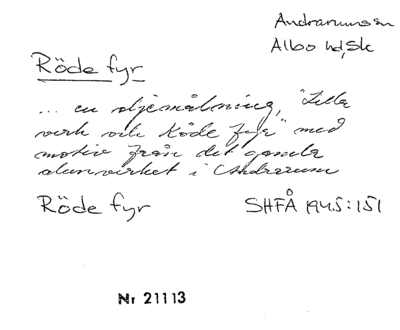 Andrarums sn
Albo hd, Sk
Röde fyr
... en oljemålning, "Lilla
verk och Röde fyr" med
motiv från det gamla
alunverket i Andrarum
Röde fyr
SHFÅ 1945:151
Nr 21113